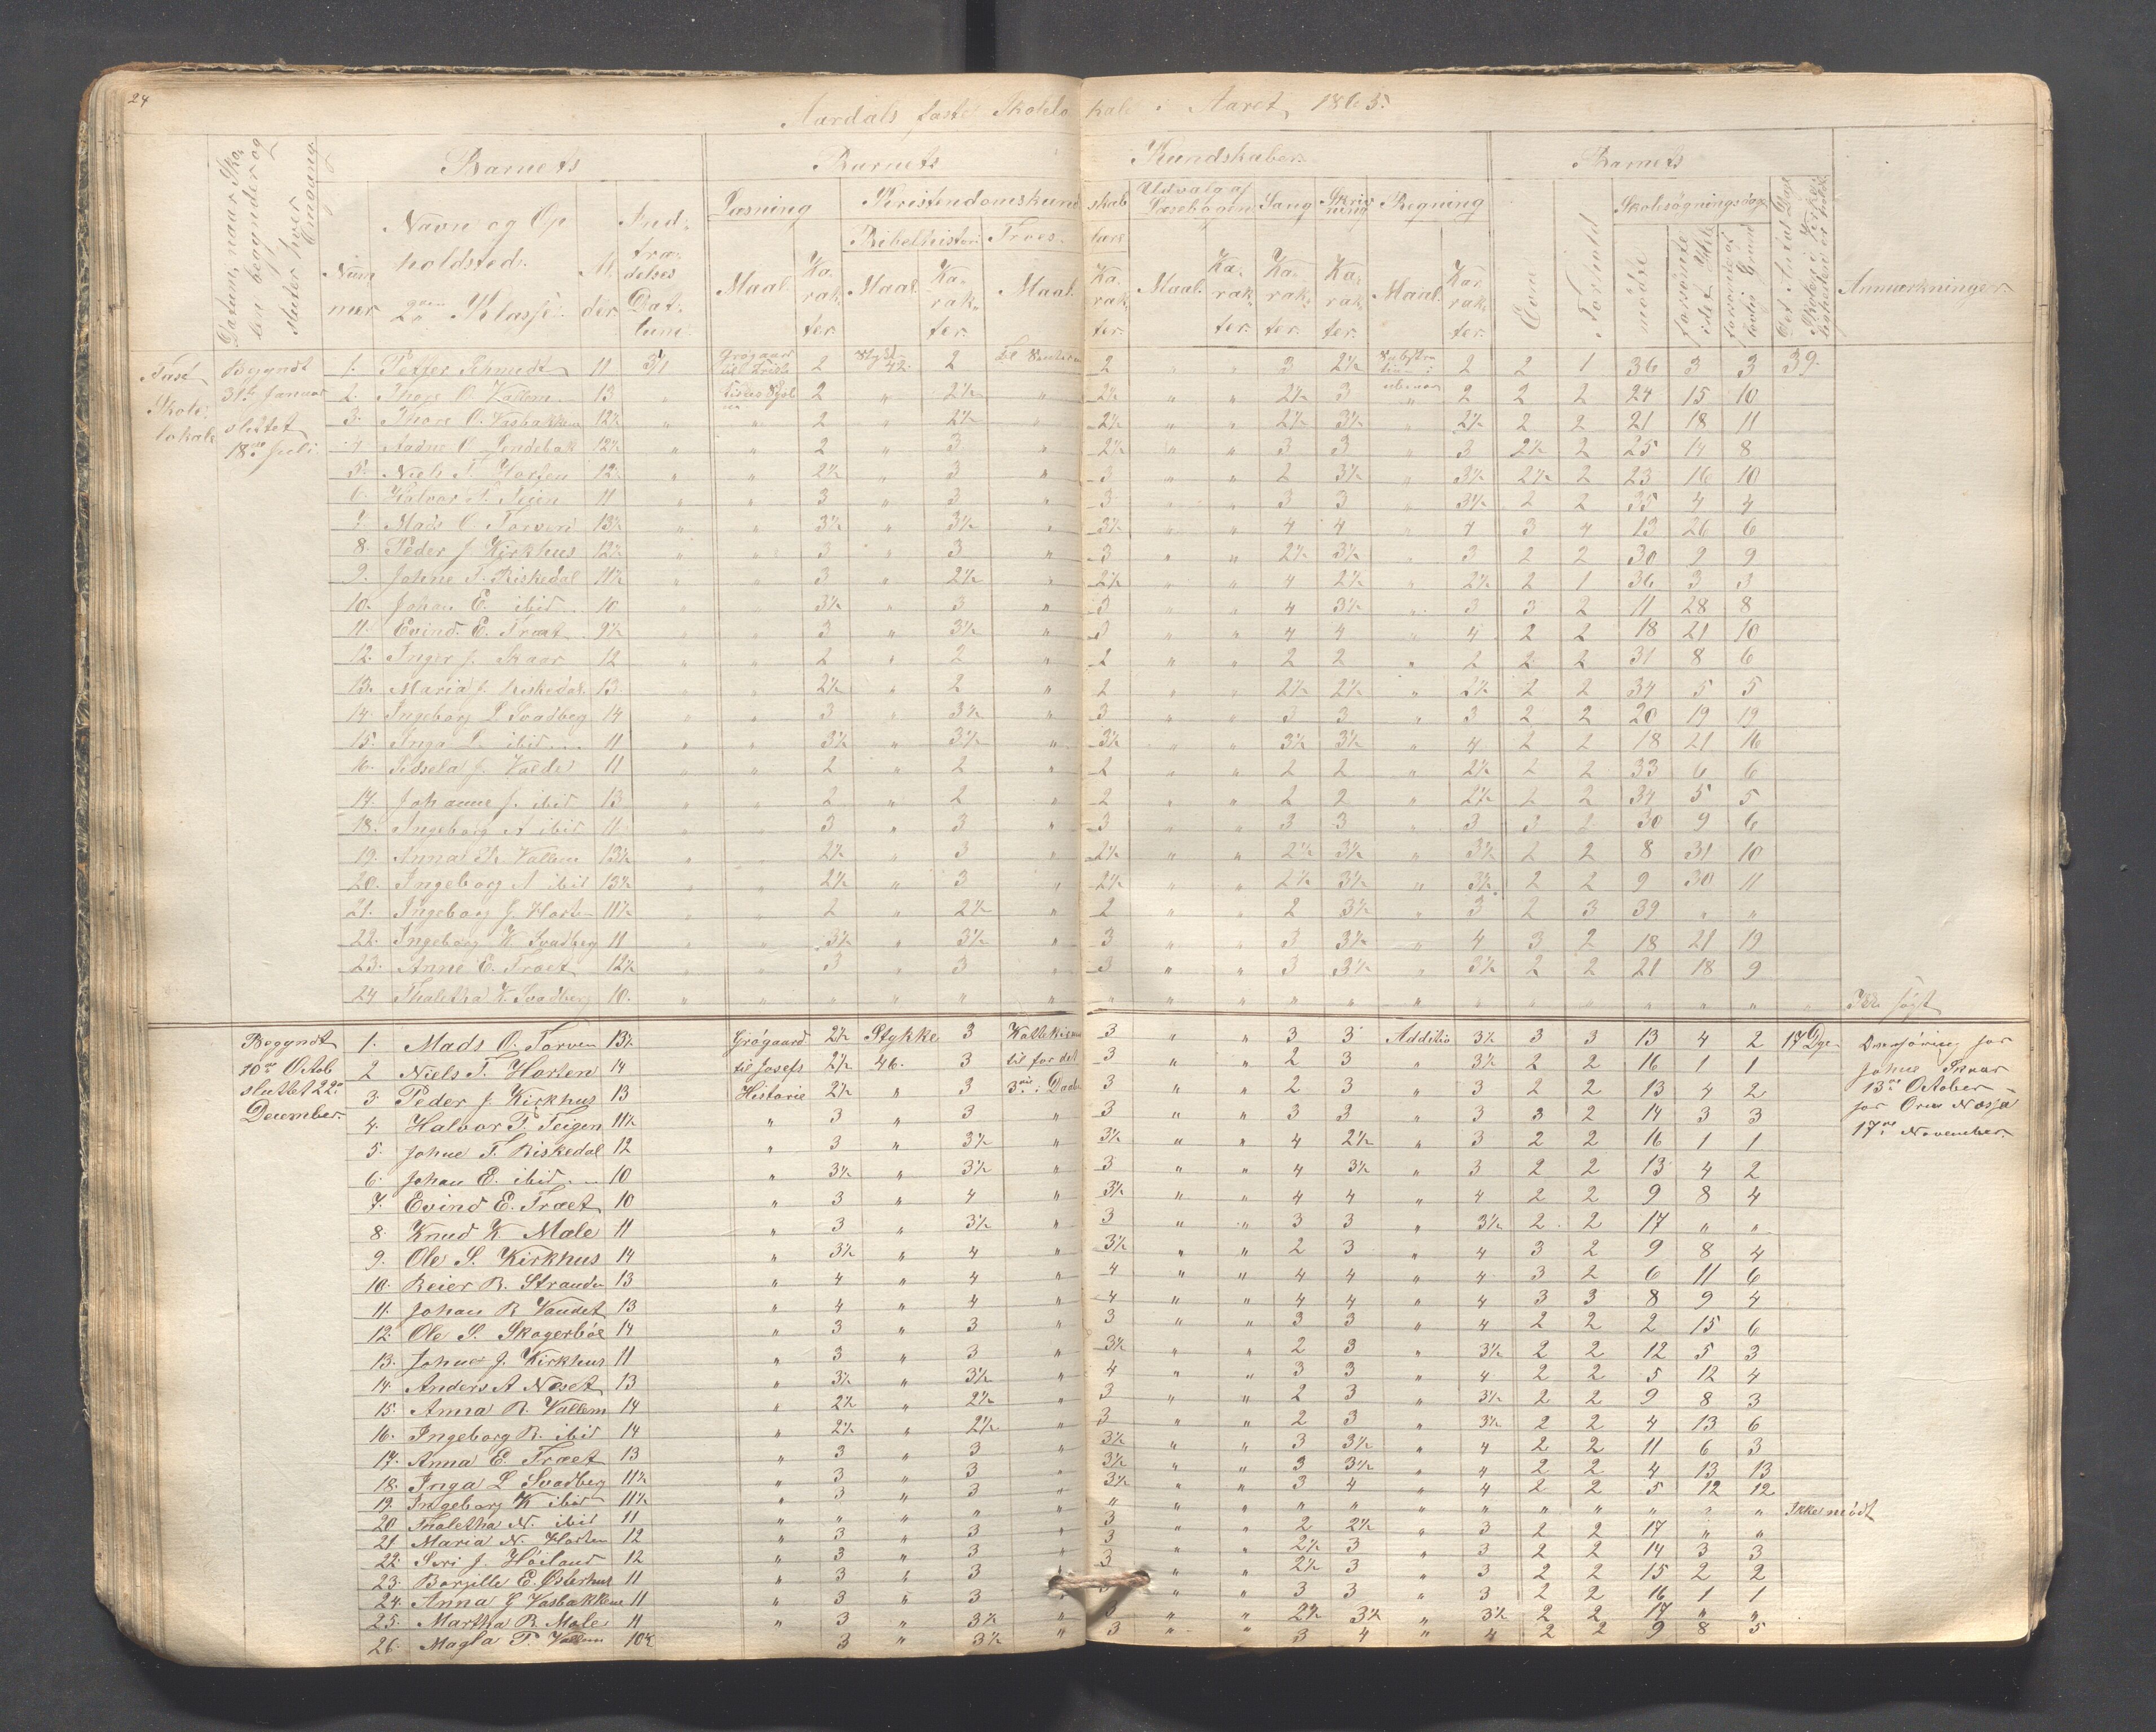 24
Aardals faste Skolelokale i Aaret 1865.
Datum, naar Skolen begynder og slutter hver Omgang
Barnets
Barnets
Kundskaber
Barnets
Nummer
Navn og Opholdsted.
2den Klasse.
Alder
Indtrædelses Dattum
Læsning
Maal.
Karakter.
Kristendomskundskab
Bibelhistorie
Maal.
Karakter.
Troeslære
Maal.
Karakter.
Udvalg af Læsebogen
Maal.
Karakter.
Sang
Karakter.
Skrivning
Karakter.
Regning
Maal.
Karakter.
Evne
Forhold
Skolesøgningsdage
mødte
forsømte i det Hele
forsømte af lovlig Grund
Det Antal Dage Skolen i Virkeligheden er holdt
Anmærkninger.
Fast Skolelokale
Begyndt 31te Januar sluttet 18de Juli.
1. Petter Schmidt 11 3/1 Grøgaard 2 Stykke 42. 2 2 " " 3 2½ 2 2 1 36 3 3 39.
2. Thore O. Vallem 13 " 2 " 2½ " 2½ " " 2½ 3 " 2 2 2 24 15 10
3. Thore O. Vasbakken 12½ " " 2 " 2½ " 2½ " " 2½ 3½ " 2½ 2 2 21 18 11
4. Aadne O. Lindebak 12½ " " 2 " 3 " 2½ " " 3 3 " 3 2½ 2 25 14 8
5. Niels T. Horten 12½ " " 2½ " 3 " 3 " " 2 3½ " 3½ 2½ 2 23 16 10
6. Halvor T. Teigen 11 " " 3 " 3 " 3 " " 3 3 " 3½ 2 2 35 4 4
7. Mads O. Torven 13½ " " 3½ " 3½ " 3½ " " 4 4 " 4 3 4 13 26 6
8. Peder J. Kirkhus 12½ " " 3 " 3 " 3 " " 2½ 3½ " 3 2 2 30 9 9
9. Johne T. Riskedal 11½ " " 3 " 2½ " 2½ " " 4 2½ " 2½ 2 1 36 3 3
10. Johan E. ibid 10 " " 3½ " 3 " 3 " " 4 3½ " 3 3 2 11 28 8
11. Evind E. Træet 9½ " " 3 " 3½ " 3 " " 4 4 " 4 2 2 18 21 10
12. Inger J. Skaar 12 " " 2 " 2 " 2 " " 2 2 " 2 2 2 31 8 6
13. Maria J. Riskedal 13 " " 2½ " 2 " 2 " " 2½ 2½ " 2½ 2 2 34 5 5
14. Ingeborg L Svadberg 14 " " 3 " 3½ " 3 " " 3 3 " 3 2 2 20 19 19
15. Inga L. ibid 11 " " 3½ " 3½ " 3½ " " 3½ 3½ " 4 2 2 18 21 16
16. Sidsela J. Valde 11 " " 2 " 2 " 2 " " 2 2 " 2½ 2 2 33 6 6
17. Johanne J. ibid 13 " " 2 " 2 " 2 " " 2 2 " 2½ 2 2 34 5 5
18. Ingeborg A ibid 11 " " 3 " 3 " 3 " " 3 3 " 3 3 2 30 9 6
19. Anna R. Vallem 13½ " " 2½ " 3 " 2½ " " 2½ 3½ " 3½ 2 2 8 31 10
20. Ingeborg A ibid 13½ " " 2½ " 3 " 2½ " " 2½ 3½ " 3½ 2 2 9 30 11
21. Ingeborg J. Horten 11½ " " 2 " 2½ " 2 " " 2 3½ " 3 2 3 39 " "
22. Ingeborg K. Svadberg 11 " " 3½ " 3½ " 3 " " 3 3½ " 4 3 2 18 21 19
23. Anne E. Træet 12½ " " 3 " 3 " 3 " " 3 3½ " 3½ 2 2 21 18 9
24 Thaletha K. Svadberg 10. " " " " " " " " " " " " " " " " " " " Ikke søgt
Begyndt 10de Octob sluttet 22de December.
1. Mads O. Torven 13½ Grøgaard 2½ Stykke 3 Kattekismus 3 " " 3 3 Additio 3½ 3 3 13 4 2 17 Dge
2 Niels T. Horten 14 til Josefs 2½ 46. 3 til for det 3 " " 2 3 " 3½ 2 2 16 1 1
3. Peder J. Kirkhus 13 Historie 2½ " 3 3die 3 " " 2 3 " 3 2 2 13 4 2
4. Halvor T. Teigen 11½ " 3 " 3 " 3 " " 3 3 " 3 3 2 14 3 3
5. Johne T. Riskedal 12 " 3 " 3½ " 3½ " " 4 2½ " 3 2 2 16 1 1
6. Johan E. ibid 10 " 3½ " 3½ " 3 " " 4 3½ " 3 2 2 13 4 2
7. Evind E. Træet 10 " 3 " 4 " 3½ " " 4 4 " 4 2 2 9 8 4
8. Knud K Mæle 11 " 3 " 3½ " 3 " " 3 3 " 3½ 2 2 17 " "
9. Ole S. Kirkhus 14 " 3½ " 4 " 3½ " " 2 3 " 4 3 2 9 8 4
10. Reier R. Stranden 13 " 4 " 4 " 4 " " 4 4 " 4 3 2 6 11 6
11. Johan R Vandet 13 " 4 " 4 " 4 " " 4 4 " 4 3 3 8 9 4
12. Ole S. Skogerbøe 14 " 3 " 3 " 3 " " 3 3 " 4 2 2 2 15 6
13. Johne J. Kirkhus 11 " 3 " 3 " 3½ " " 2 3 " 3½ 2 2 12 5 3
14. Anders A Neset 13 " 3½ " 3½ " 4 " " 3 3 " 4 2 2 5 12 4
15. Anna R. Vallem 14 " 2½ " 2½ " 3 " " 2 3 " 3½ 2 2 9 8 3
16. Ingeborg R. ibid 14 " 2½ " 2½ " 3 " " 2 3 " 3½ 2 2 4 13 6
17. Anna E. Træet 13 " 3 " 3 " 3½ " " 3 3½ " 4 2 2 11 6 3
18. Inga L Svadberg 11½ " 3 " 3 " 3½ " " 3 3½ " 4 2 2 4 13 13
19. Ingeborg K ibid 11½ " 3 " 3 " 3½ " " 3 4 " 4 2 2 5 12 12
20. Thaletha N. ibid 11 " " " " " " " " " " " " " " " " " Ikke mødt
21 Maria N. Horten 12 " 3 " 3 " 3 " " 2 2½ " 3 2 2 17 " "
22. Siri J. Høiland 12 " 3 " 3 " 3 " " 2½ 3 " 3 2 2 14 3 3
23. Borgille E. Østerhus 11 " 3 " 3 " 3 " " 2½ 3 " 3 2 2 15 2 2
24. Anna G Vasbakken 11 " 3 " 3 " " " 3 3 " 3 2 2 16 1 1
25. Martha R. Mæle 11 " 3 " 3½ " 3 " " 2½ 3½ " 3½ 2 2 17 " "
26. Magla T. Vallem 10½ 3 " 3½ " 3 " " 3 4 " 4 2 2 9 8 5
for
Johne Skaar
13de October
for Orm Næsse
17de November.